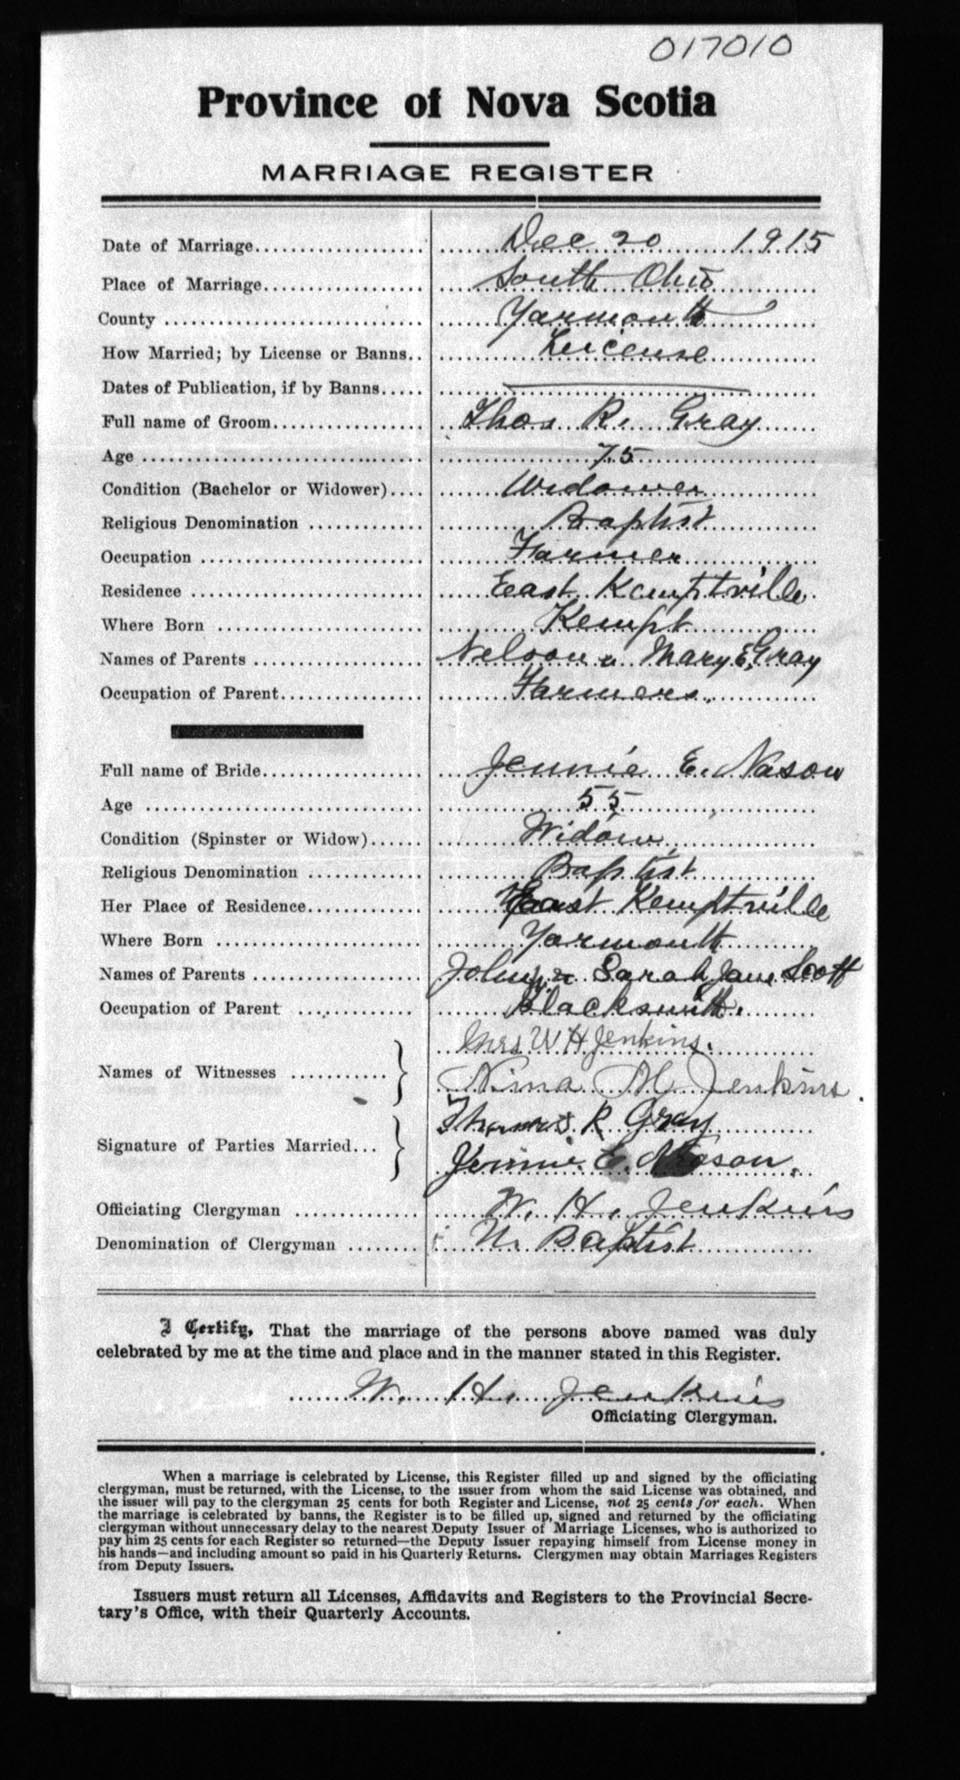 017010
Province of Nova Scotia
MARRIAGE REGISTER
Date of Marriage.................... Dec 20 1915
Place of Marriage................... South Ohio
County ............................ Yarmouth
How Married; by License or Banns.. License
Dates of Publication, if by Banns.....
Full name of Groom.................. Thos R. Gray
Age ............................... 75
Condition (Bachelor or Widower).... Widower
Religious Denomination ............ Baptist
Occupation ........................ Farmer
Residence ......................... East Kemptville
Where Born ....................... Kempt
Names of Parents .................. Nelson & Mary E. Gray
Occupation of Parent................ Farmers.
Full name of Bride.................. Jennie E. Nason
Age ............................... 55
Condition (Spinster or Widow)...... Widow
Religious Denomination ............ Baptist
Her Place of Residence.............. East Kemptville
Where Born ....................... Yarmouth
Names of Parents .................. & Sarah Jane Scott
Occupation of Parent ............. Blacksmith.
Names of Witnesses ........... Mrs W H Jenkins.
Nina M. Jenkins.
Signature of Parties Married... Thomas R Gray
Jennie E. Nason.
Officiating Clergyman ............. W. H. Jenkins
Denomination of Clergyman ........ U. Baptist
I Certify, That the marriage of the persons above named was duly
celebrated by me at the time and place and in the manner stated in this Register.
W. H. Jenkins
Officiating Clergyman.
When a marriage is celebrated by License, this Register filled up and signed by the officiating
clergyman, must be returned, with the License, to the issuer from whom the said License was obtained, and
the issuer will pay to the clergyman 25 cents for both Register and License, not 25 cents for each. When
the marriage is celebrated by banns, the Register is to be filled up, signed and returned by the officiating
clergyman without unnecessary delay to the nearest Deputy Issuer of Marriage Licenses, who is authorized to
pay him 25 cents for each Register so returned—the Deputy Issuer repaying himself from License money in
his hands—and including amount so paid in his Quarterly Returns. Clergymen may obtain Marriages Registers
from Deputy Issuers.
Issuers must return all Licenses, Affidavits and Registers to the Provincial Secre-
tary's Office, with their Quarterly Accounts.